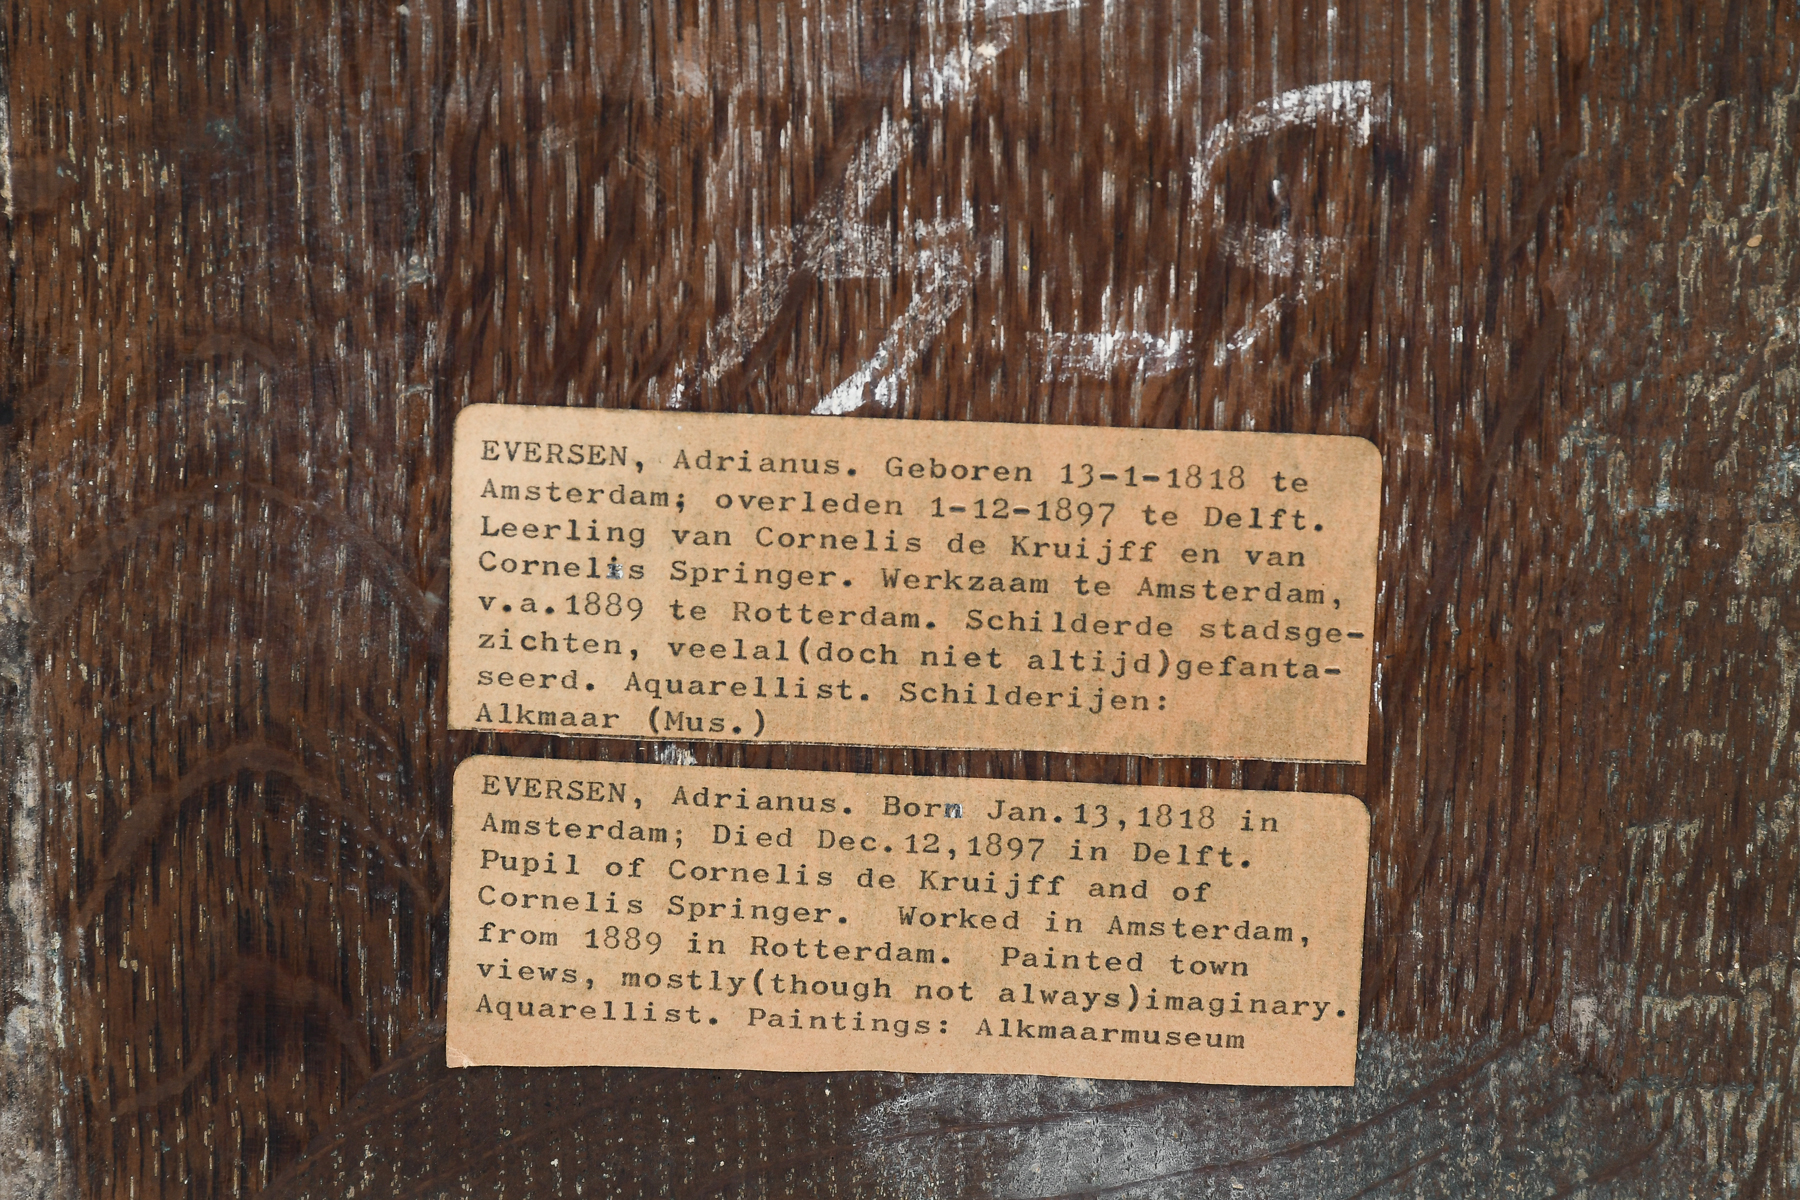 EVERSEN, Adrianus. Geboren 13-1-1818 te
Amsterdam; overleden 1-12-1897 te Delft.
Leerling van Cornelis de Kruijff en van
Cornelis Springer. Werkzaam te Amsterdam,
v.a.1889 te Rotterdam. Schilderde stadsge-
zichten, veelal(doch niet altijd)gefanta-
seerd. Aquarellist. Schilderijen:
Alkmaar (Mus.)
EVERSEN, Adrianus. Born Jan.13,1818 in
Amsterdam; Died Dec.12,1897 in Delft.
Pupil of Cornelis de Kruijff and of
Cornelis Springer.  Worked in Amsterdam,
from 1889 in Rotterdam.  Painted town
views, mostly(though not always)imaginary.
Aquarellist. Paintings: Alkmaarmuseum